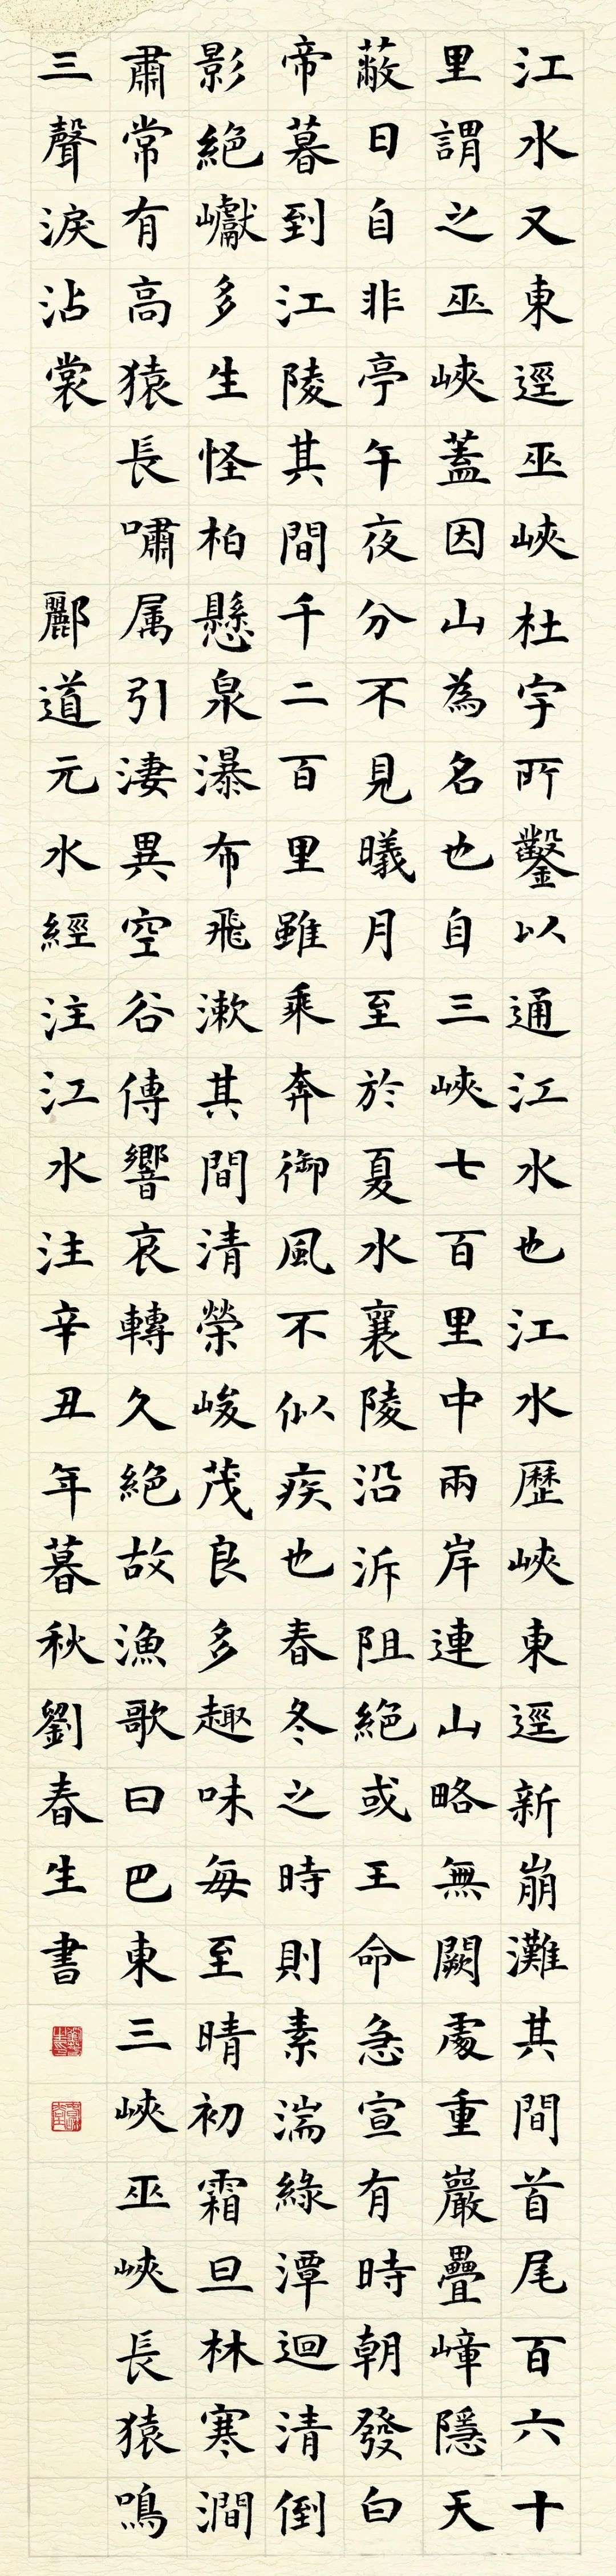 江水又東逕巫峽杜宇所鑿以通江水也江水歷峽東逕新崩灘其間首尾百六十
里謂之巫峽蓋因山為名也自三峽七百里中兩岸連山略無闕處重巖疊嶂隱天
蔽日自非亭午夜分不見曦月至於夏水襄陵沿泝阻絕或王命急宣有時朝發白
帝暮到江陵其間千二百里雖乘奔御風不似疾也春冬之時則素湍綠潭迴清倒
影絕巘多生怪柏懸泉瀑布飛漱其間清榮峻茂良多趣味每至晴初霜旦林寒澗
肅常有高猿長嘯属引淒異空谷傳響哀轉久絕故漁歌曰巴東三峽巫峽長猿鳴
三聲淚沾裳
酈道元水經注江水注辛丑年暮秋劉春生書